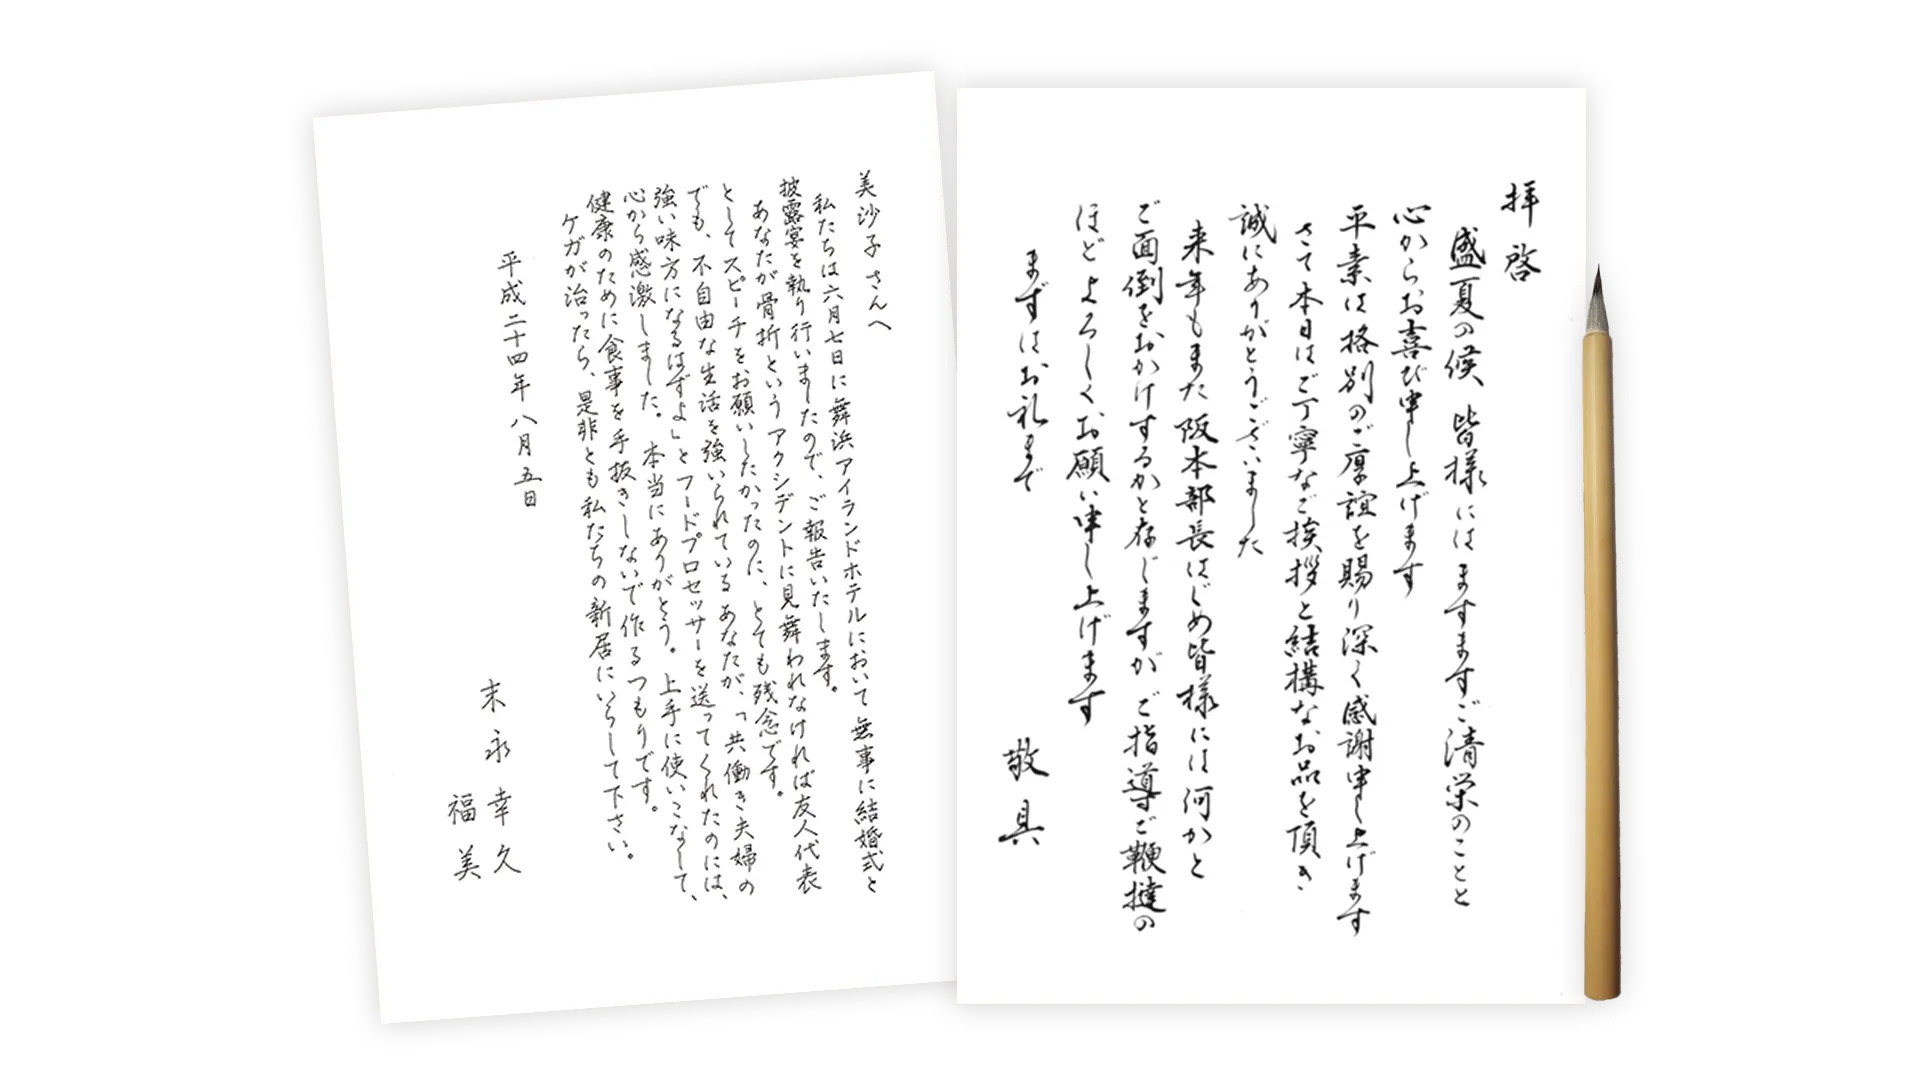 拝啓
盛夏の候 皆様には ますます ご清栄のことと
心からお喜び申し上げます
平素は格別のご厚誼を賜り深く感謝申し上げます
さて本日はご丁寧なご挨拶と結構なお品を頂き
誠にありがとうございました
来年もまた阪本部長はじめ皆様には何かと
ご面倒をおかけするかと存じますが ご指導ご鞭撻の
ほど よろしくお願い申し上げます
まずはお礼まで
敬具
美沙子さんへ
私たちは六月七日に舞浜アイランドホテルにおいて無事に結婚式と
披露宴を執り行いましたので、ご報告いたします。
あなたが骨折というアクシデントに見舞われなければ友人代表
としてスピーチをお願いしたかったのに、とても残念です。
でも、不自由な生活を強いられているあなたが、「共働き夫婦の
強い味方になるはずよ」とフードプロセッサーを送ってくれたのには、
心から感激しました。本当にありがとう。上手に使いこなして、
健康のために食事を手抜きしないで作るつもりです。
ケガが治ったら、是非とも私たちの新居にいらして下さい。
平成二十四年八月五日
末永幸久
福美